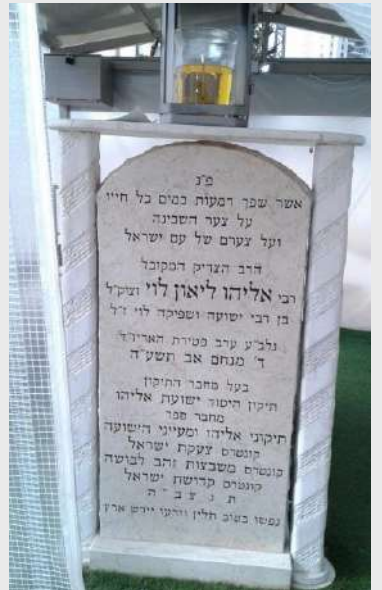 פ"נ
אשר שפך דמעות כמים כל חייו
על צער השכינה
ועל צערם של עם ישראל
הרב הצדיק המקובל
רבי אליהו ליאון לוי זצוק"ל
בן רבי ישועה ושפיקה לוי ז"ל
נלב"ע ערב פטירת האריז"ל
ד' מנחם אב תשע"ה
בעל מחבר התיקון
תיקון היסוד ישועת אליהו
מחבר ספר
תיקוני אליהו ומעייני הישועה
קונטרס צעקת ישראל
קונטרס משבצות זהב לבושה
קונטרס קדושת ישראל
ת נ צ ב " ה
נפשו בטוב תלין וזרעו יירש ארץ